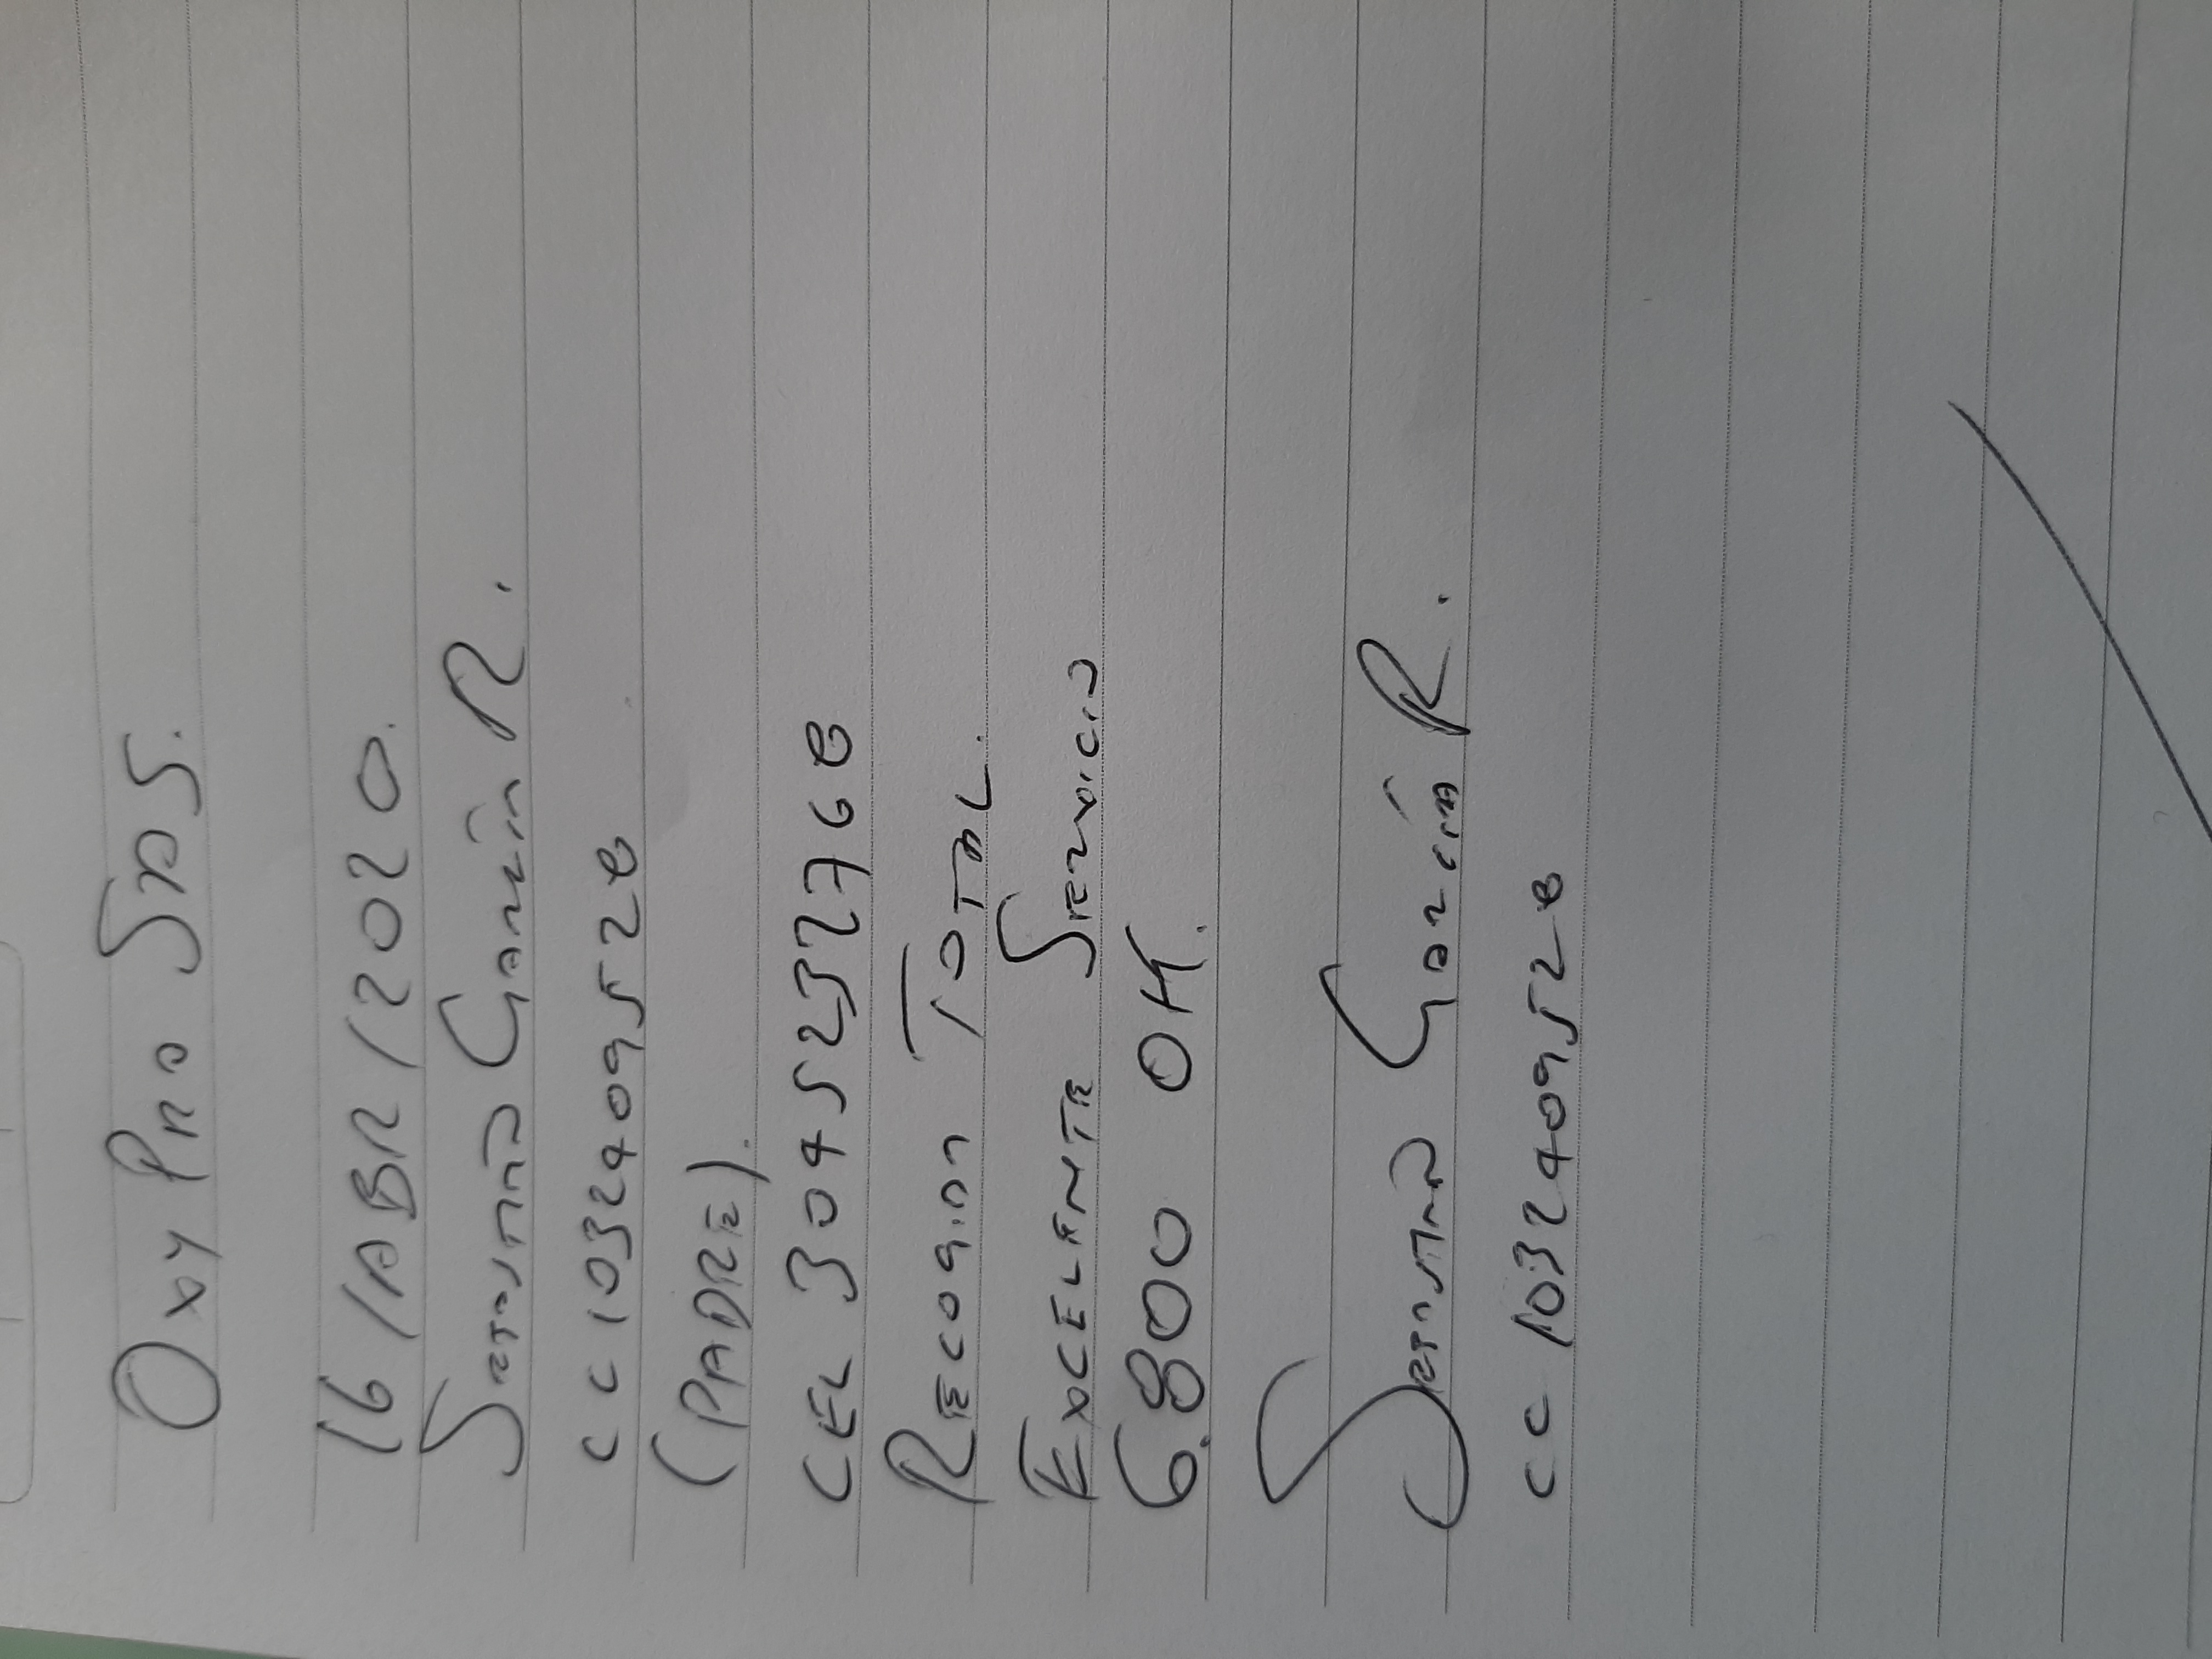 Oxy Pro SAS.
16/ABR/2020.
Sebastian García R.
CC 1032409528
(PADRE).
CEL 3045232768
RECOGIDA TOTAL.
EXCELENTE SERVICIO
6.800 OK.
Sebastian García R.
CC 1032409528